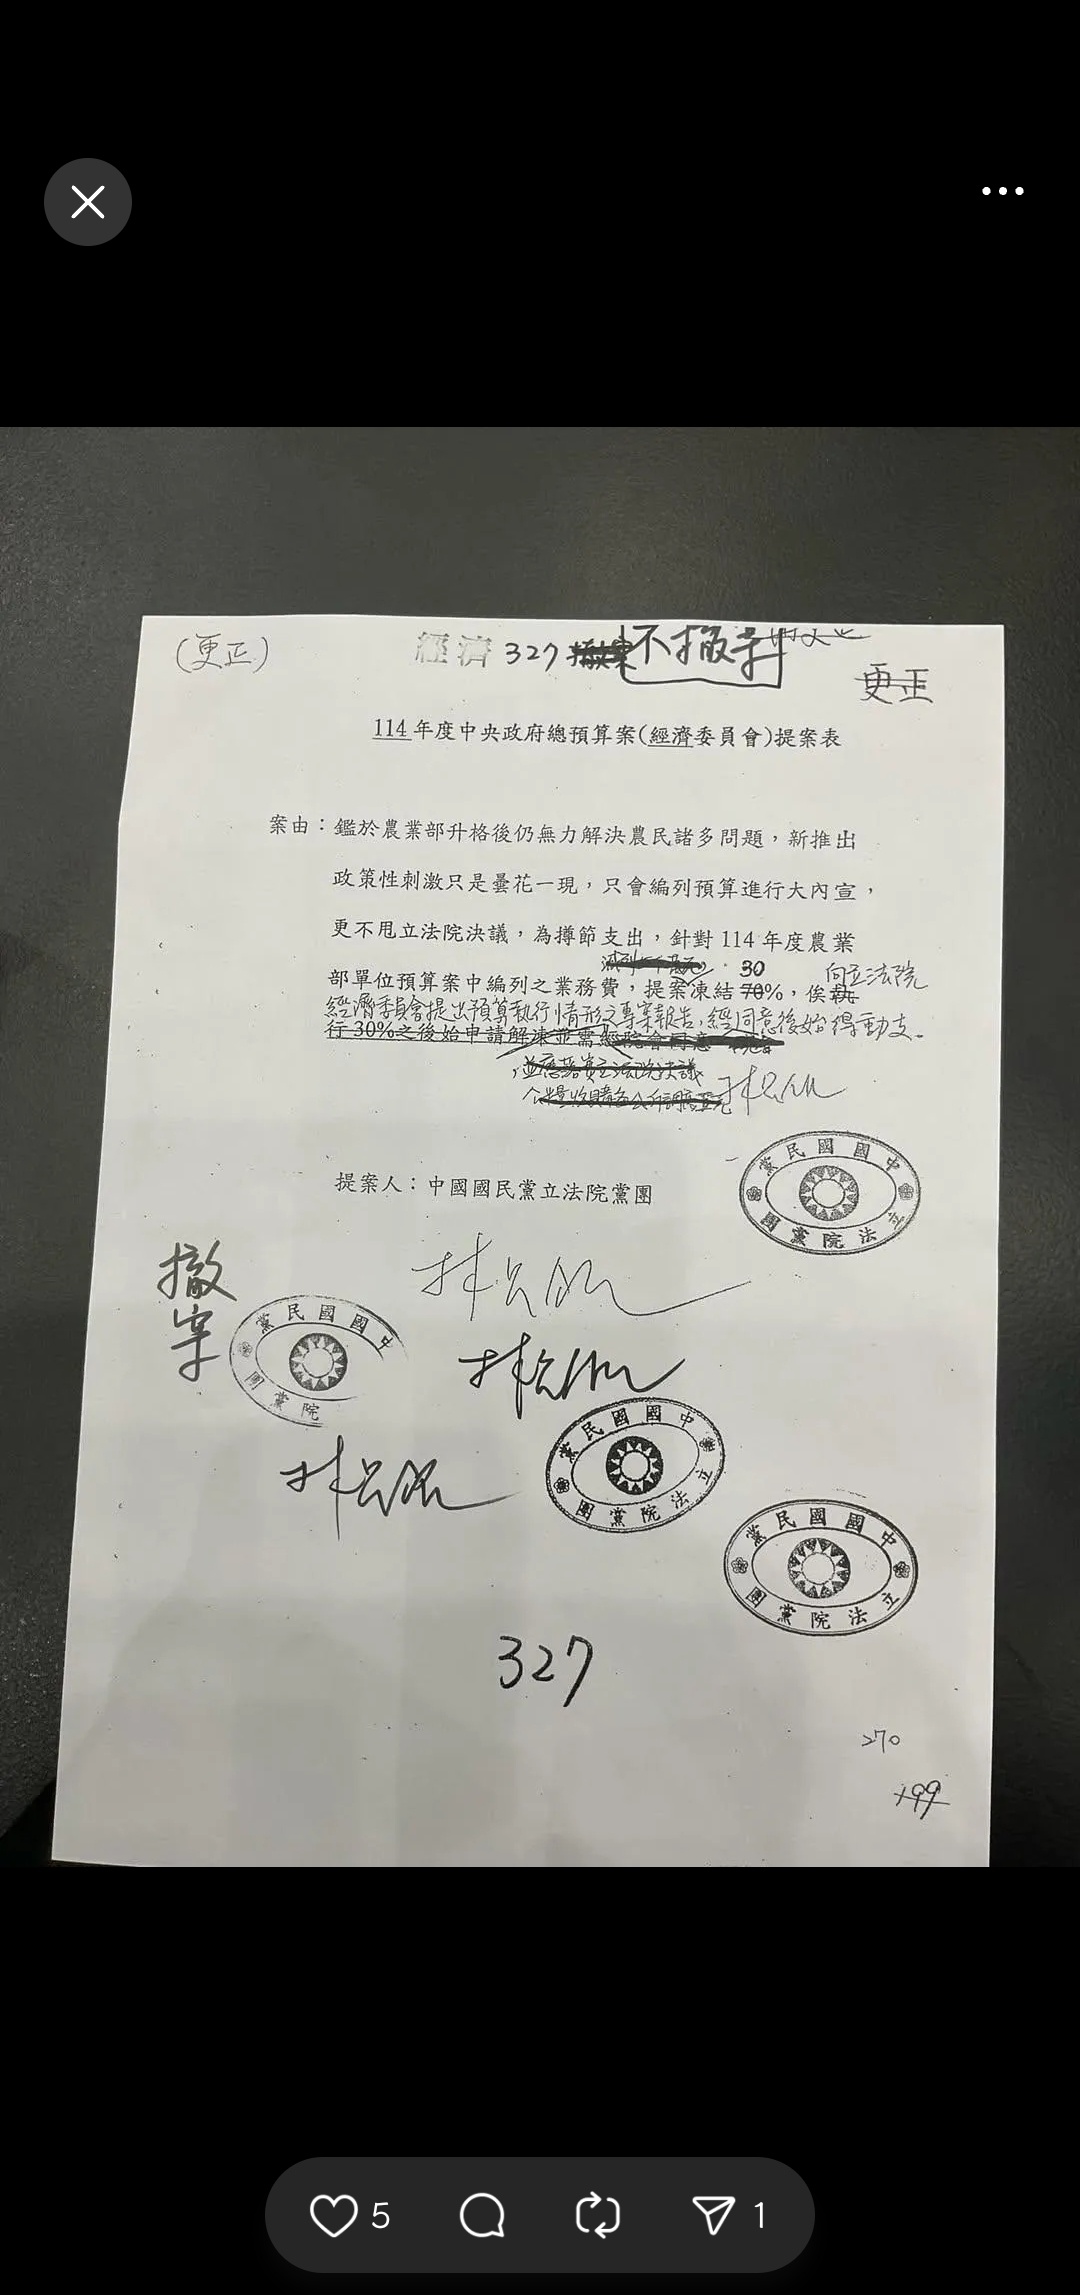 (更正)
經濟 327 不撤案
更正
114年度中央政府總預算案(經濟委員會)提案表
案由：鑑於農業部升格後仍無力解決農民諸多問題，新推出
政策性刺激只是曇花一現，只會編列預算進行大內宣，
更不甩立法院決議，為撙節支出，針對114年度農業
30 向立法院
部單位預算案中編列之業務費，提案凍結70%，俟執
經濟委員會提出預算執行情形之專案報告，經同意後始得動支。
行30%之後始申請解凍並需經院會同意
提案人：中國國民黨立法院黨團
中國國民黨
立法院黨團
撤案
中國國民黨
院黨團
中國國民黨
立法院黨團
中國國民黨
立法院黨團
327
270
199
5
1